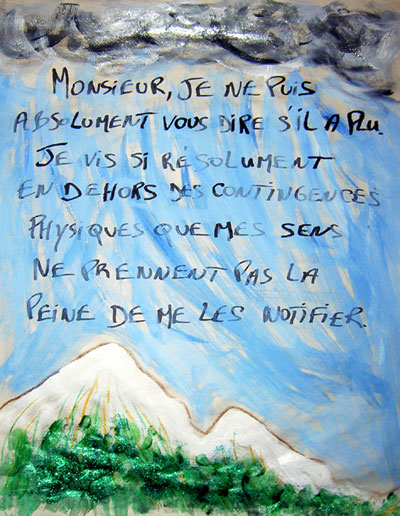 MONSIEUR, JE NE PUIS
ABSOLUMENT VOUS DIRE S'IL A PLU.
JE VIS SI RÉSOLUMENT
EN DEHORS DES CONTINGENCES
PHYSIQUES QUE MES SENS
NE PRENNENT PAS LA
PEINE DE ME LES NOTIFIER.